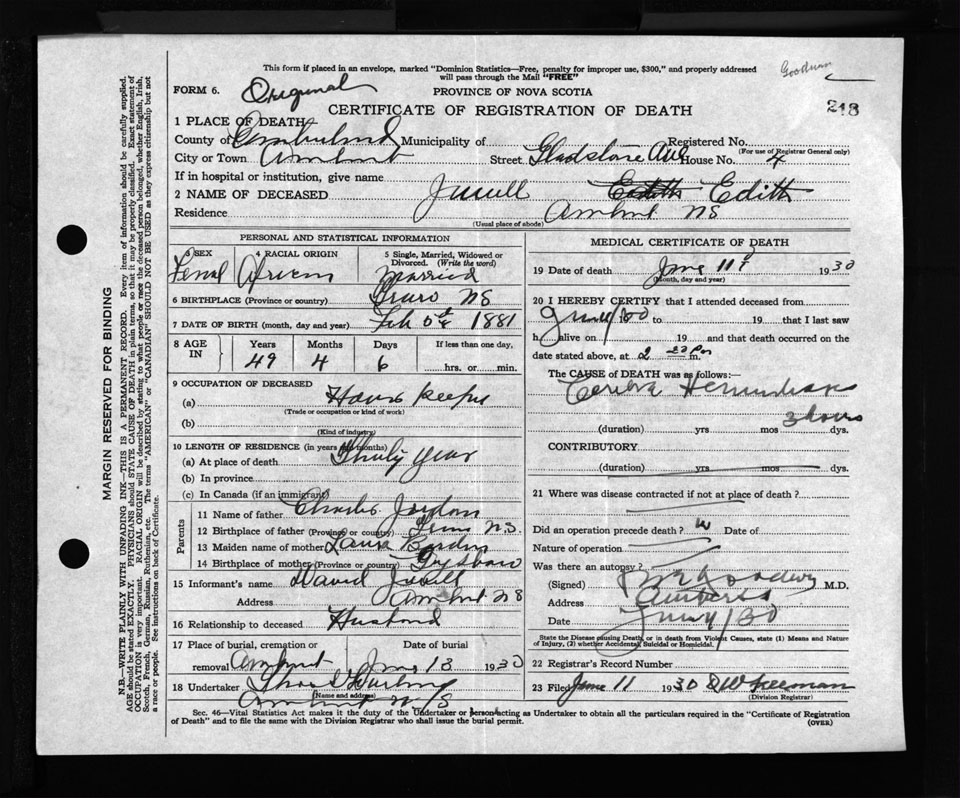 This form if placed in an envelope, marked "Dominion Statistics—Free, penalty for improper use, $300," and properly addressed
will pass through the Mail "FREE"
Goodwin
FORM 6. Original
PROVINCE OF NOVA SCOTIA
CERTIFICATE OF REGISTRATION OF DEATH
218
1 PLACE OF DEATH
County of Cumberland Municipality of Registered No.
(For use of Registrar General only)
City or Town Amherst Street Gladstone Ave House No. 4
If in hospital or institution, give name
2 NAME OF DECEASED Jewell Edith Edith
Residence Amherst NS
(Usual place of abode)
PERSONAL AND STATISTICAL INFORMATION
3 SEX 4 RACIAL ORIGIN 5 Single, Married, Widowed or
Divorced. (Write the word)
Femal African Married
6 BIRTHPLACE (Province or country) Truro NS
7 DATE OF BIRTH (month, day and year) Feb 5th 1881
8 AGE IN Years Months Days If less than one day,
49 4 6 hrs. or min.
9 OCCUPATION OF DECEASED
(a) House Keeper
(Trade or occupation or kind of work)
(b)
(Kind of industry)
10 LENGTH OF RESIDENCE (in years and months)
(a) At place of death Thirty year
(b) In province
(c) In Canada (if an immigrant)
Parents
11 Name of father Charles Jordon
12 Birthplace of father (Province or country) Truro N.S.
13 Maiden name of mother Laura
14 Birthplace of mother (Province or country) Guysboro
15 Informant's name David Jewell
Address Amherst NS
16 Relationship to deceased Husband
17 Place of burial, cremation or Date of burial
removal Amherst June 13 1930
18 Undertaker
(Name and address)
Amherst N/S
MEDICAL CERTIFICATE OF DEATH
19 Date of death June 11th 1930
(Month, day and year)
20 I HEREBY CERTIFY that I attended deceased from
19 to 19 that I last saw
h alive on 19 and that death occurred on the
date stated above, at 2 m.
The CAUSE of DEATH was as follows:—
Hemorrhage
3 hours
(duration) yrs mos dys.
CONTRIBUTORY
(duration) yrs mos dys.
21 Where was disease contracted if not at place of death?
Did an operation precede death? Date of
Nature of operation
Was there an autopsy?
(Signed) Goodwin M.D.
Address Amherst
Date
State the Disease causing Death, or in death from Violent Causes, state (1) Means and Nature
of Injury, (2) whether Accidental, Suicidal or Homicidal.
22 Registrar's Record Number
23 Filed June 11 1930 Freeman
(Division Registrar)
Sec. 46—Vital Statistics Act makes it the duty of the Undertaker or person acting as Undertaker to obtain all the particulars required in the "Certificate of Registration
of Death" and to file the same with the Division Registrar who shall issue the burial permit.
(OVER)
MARGIN RESERVED FOR BINDING
N.B.—WRITE PLAINLY WITH UNFADING INK—THIS IS A PERMANENT RECORD. Every item of information should be carefully supplied.
AGE should be stated EXACTLY. PHYSICIANS should STATE CAUSE OF DEATH in plain terms, so that it may be properly classified. Exact statement of
OCCUPATION is very important. RACIAL ORIGIN will be described by stating to what people or race the deceased person belonged, whether English, Irish,
Scotch, French, German, Russian, Ruthenian, etc. The terms "AMERICAN" or "CANADIAN" SHOULD NOT BE USED as they express citizenship but not
a race or people. See instructions on back of Certificate.